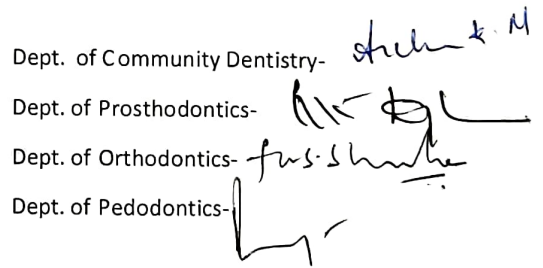 Dept. of Community Dentistry- K. M
Dept. of Prosthodontics-
Dept. of Orthodontics-
Dept. of Pedodontics-